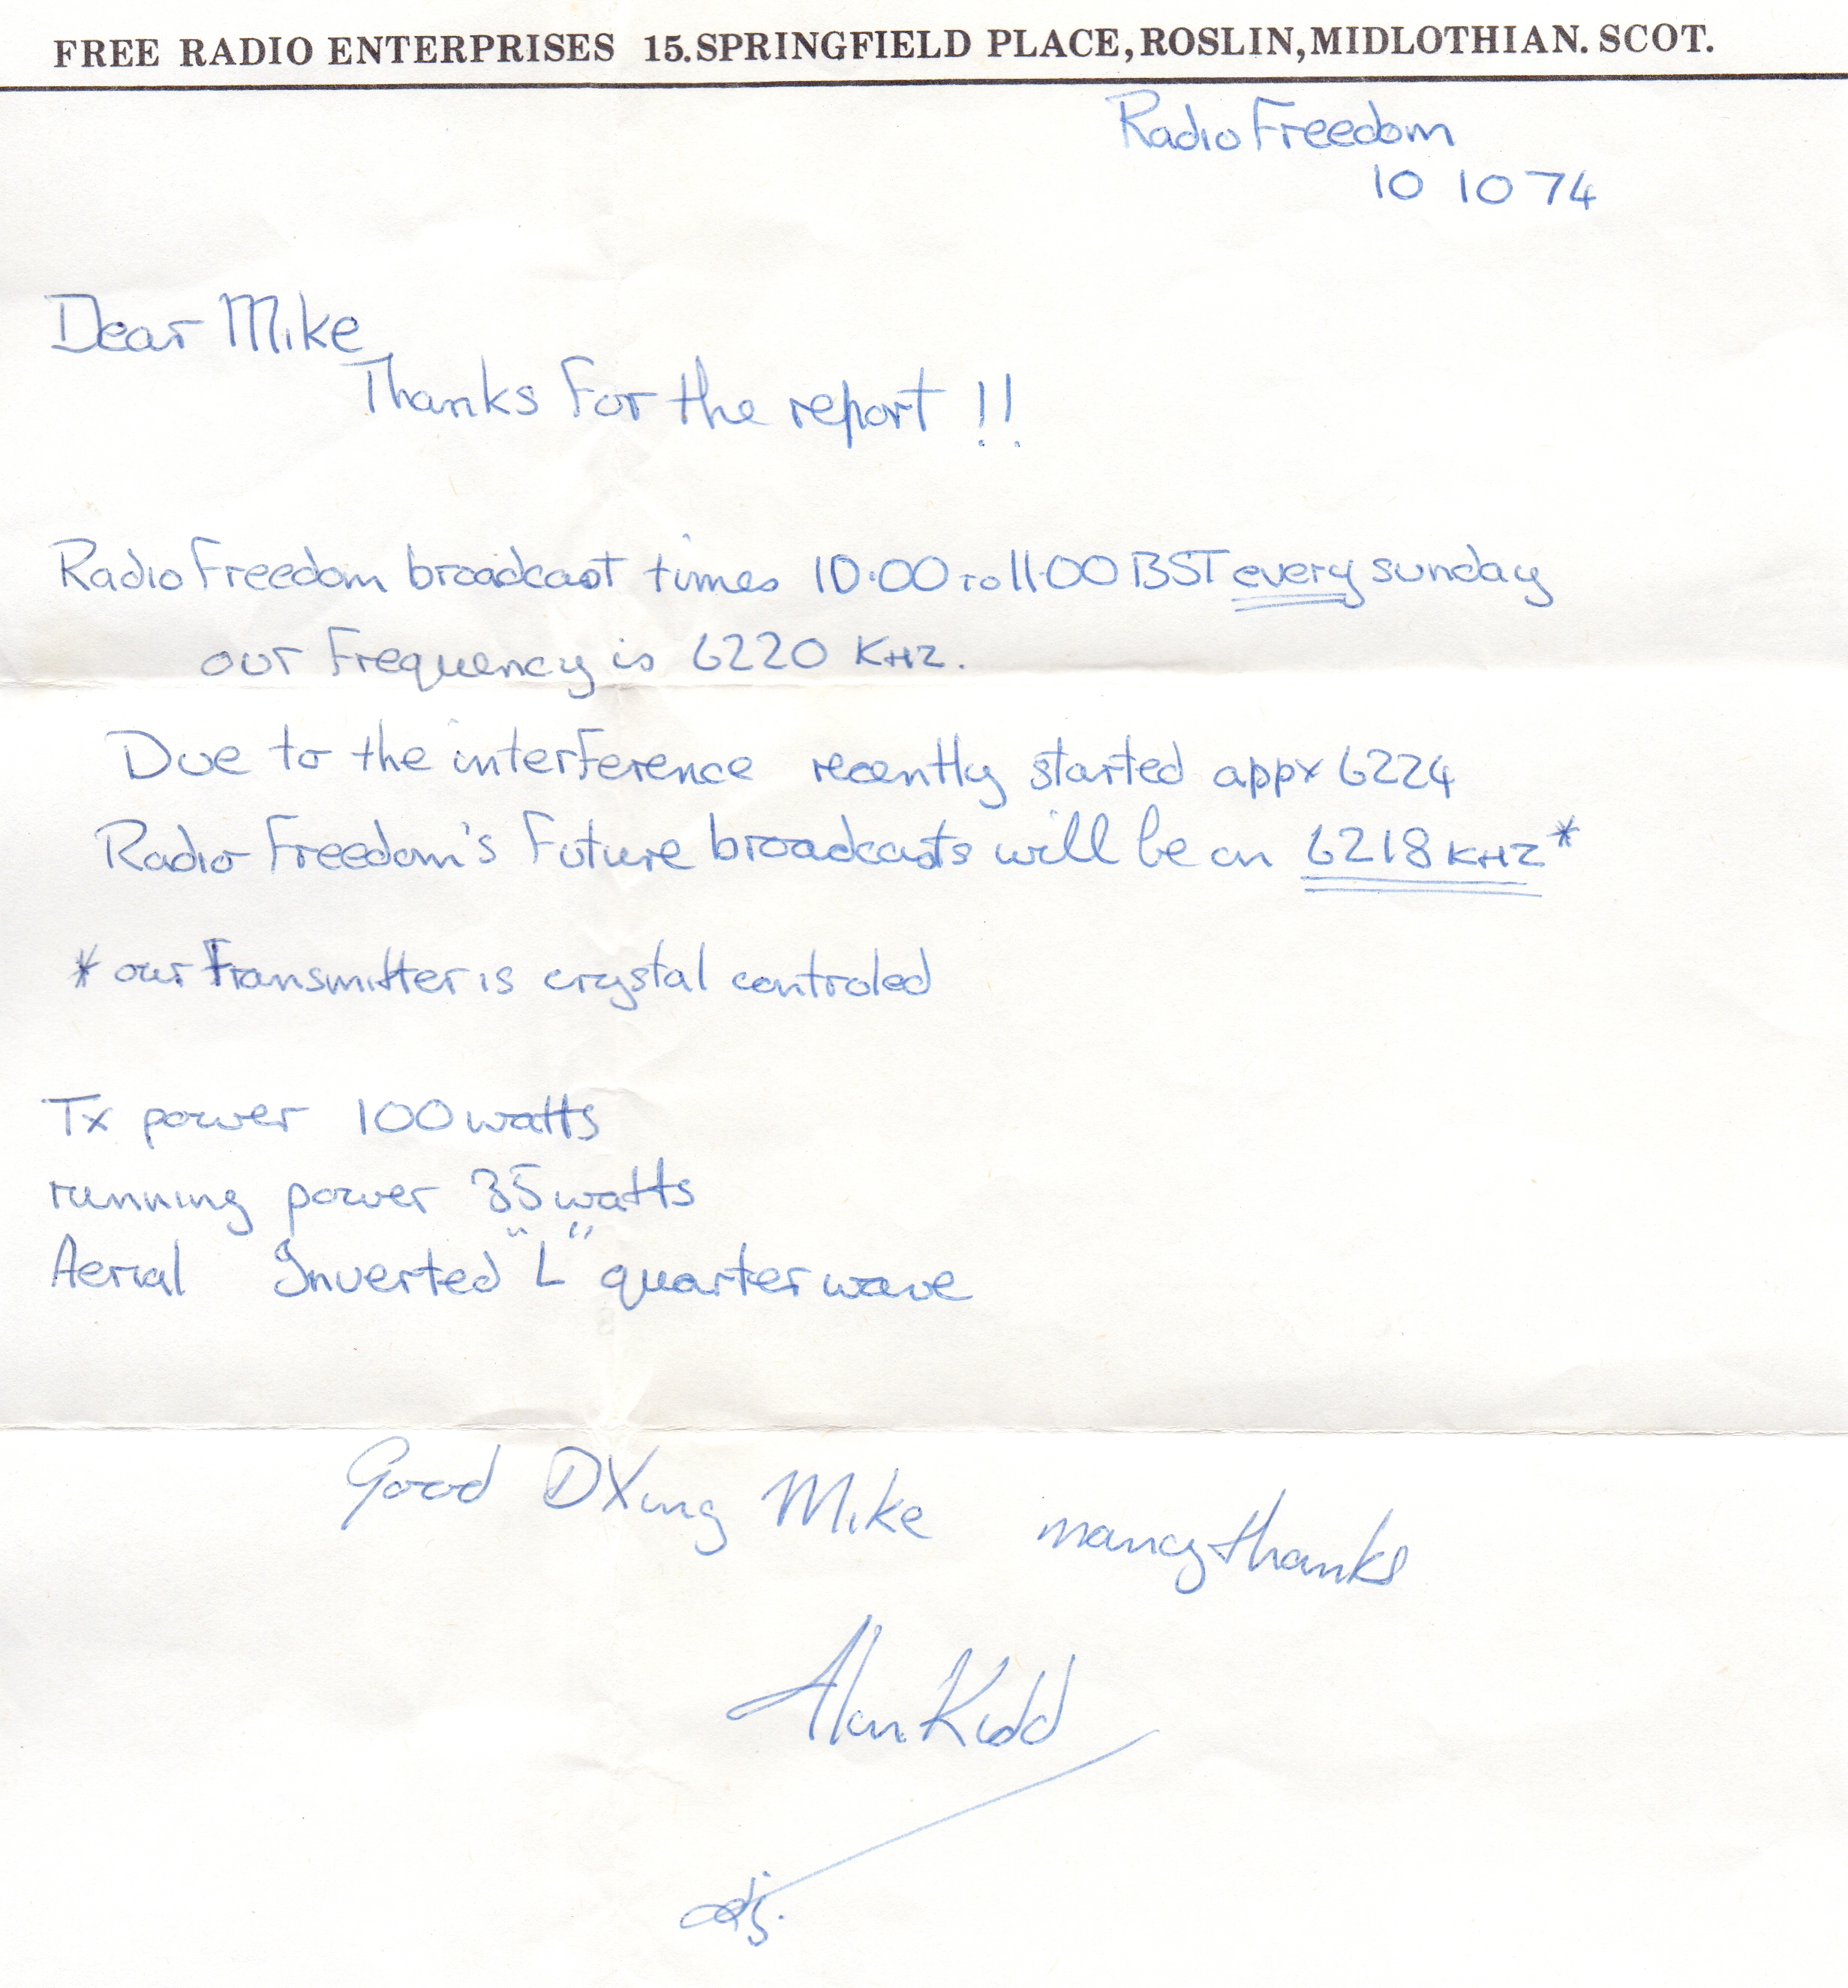 FREE RADIO ENTERPRISES 15.SPRINGFIELD PLACE, ROSLIN, MIDLOTHIAN. SCOT.
Radio Freedom
10 10 74
Dear Mike
Thanks for the report !!
Radio Freedom broadcast times 10.00 to 11.00 BST every sunday
our Frequency is 6220 KHZ.
Due to the interference recently started appx 6224
Radio Freedom's Future broadcasts will be on 6218 KHZ*
* our Transmitter is crystal controled
Tx power 100 watts
running power 35 watts
Aerial Inverted "L" quarter wave
Good DXing Mike many thanks
Alan Kidd
dj.